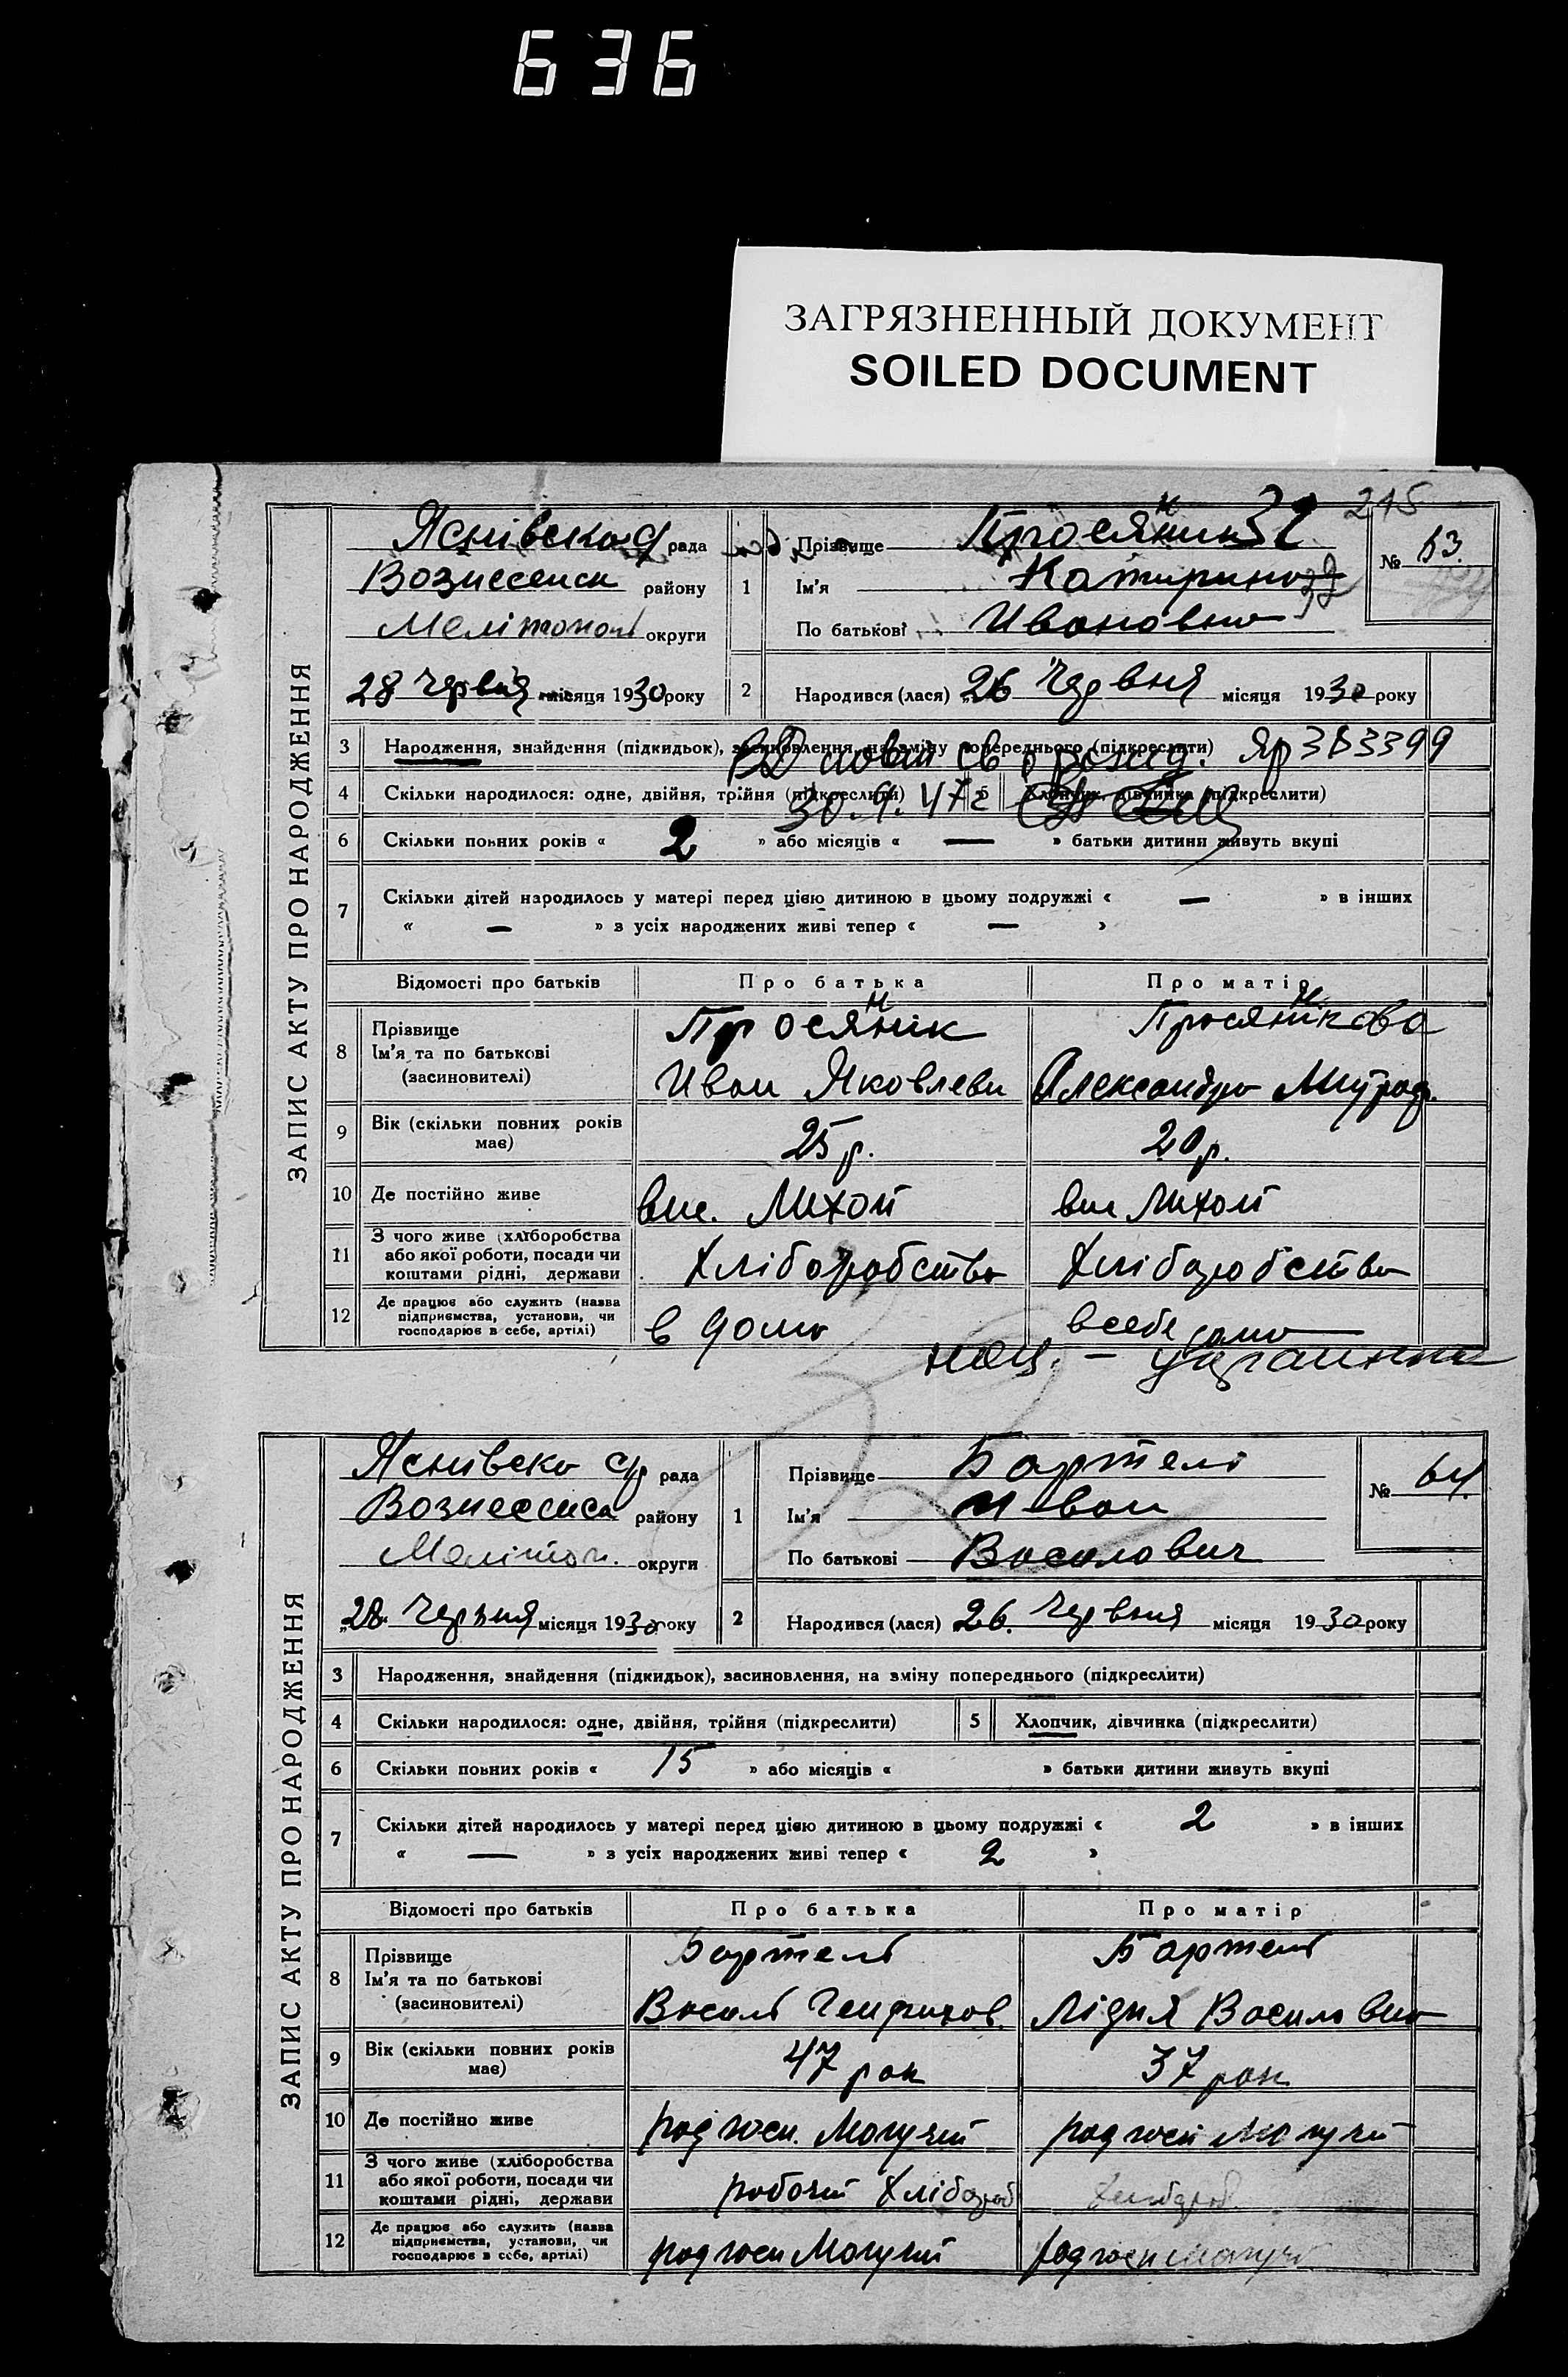 636
ЗАГРЯЗНЕННЫЙ ДОКУМЕНТ
SOILED DOCUMENT
215
ЗАПИС АКТУ ПРО НАРОДЖЕННЯ
рада
Вознесенск району
Мелітопол округи
28 Червня місяця 1930 року
1 Прізвище
Ім'я Катирина
По батькові Ивановна
№ 63.
2 Народився (лася) 26 Червня місяця 1930 року
3 Народження, знайдення (підкидьок), засиновлення, на зміну попереднього (підкреслити)
383399
30. 4. 47 г
4 Скільки народилося: одне, двійня, трійня (підкреслити) 5 Хлопчик, дівчинка (підкреслити)
6 Скільки повних років « 2 » або місяців « — » батьки дитини живуть вкупі
7 Скільки дітей народилось у матері перед цією дитиною в цьому подружжі « — » в інших
« — » з усіх народжених живі тепер « — »
Відомості про батьків Про батька Про матір
8 Прізвище Просянік Просянікова
Ім'я та по батькові
(засиновителі) Иван Яковлеви Александра
9 Вік (скільки повних років має) 25 р. 20 р.
10 Де постійно живе вис. вис
11 З чого живе (хліборобства або якої роботи, посади чи коштами рідні, держави Хліборобство Хліборобство
12 Де працює або служить (назва підприємства, установи, чи господарює в себе, артілі) в дома в себе дома
нац. – украинка
ЗАПИС АКТУ ПРО НАРОДЖЕННЯ
рада
району
Меліт оп. округи
28. Червня місяця 1930 року
1 Прізвище Бартелі
Ім'я Иван
По батькові Василович
№ 64.
2 Народився (лася) 26. Червня місяця 1930 року
3 Народження, знайдення (підкидьок), засиновлення, на зміну попереднього (підкреслити)
4 Скільки народилося: одне, двійня, трійня (підкреслити) 5 Хлопчик, дівчинка (підкреслити)
6 Скільки повних років « 15 » або місяців « » батьки дитини живуть вкупі
7 Скільки дітей народилось у матері перед цією дитиною в цьому подружжі « 2 » в інших
« — » з усіх народжених живі тепер « 2 »
Відомості про батьків Про батька Про матір
8 Прізвище Бартель Бартель
Ім'я та по батькові
(засиновителі) Василь Генрихов. Лідия Василовна
9 Вік (скільки повних років має) 47 рок 37 рок
10 Де постійно живе радгосп. Могучий радгосп Могучий
11 З чого живе (хліборобства або якої роботи, посади чи коштами рідні, держави робочий Хлібороб Хлібороб
12 Де працює або служить (назва підприємства, установи, чи господарює в себе, артілі) радгосп Могучий радгосп Могучий